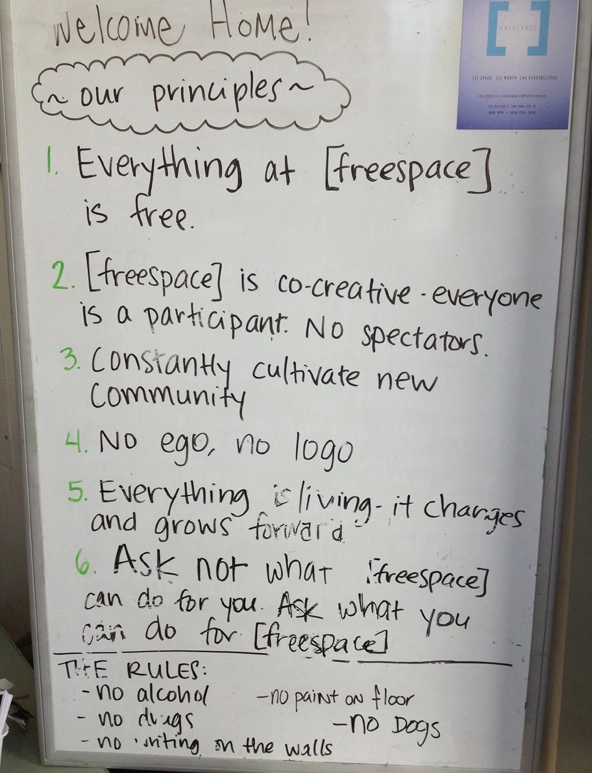 Welcome Home!
~ our principles ~
1. Everything at [freespace]
is free.
2. [freespace] is co-creative - everyone
is a participant. No spectators.
3. Constantly cultivate new
community
4. No ego, no logo
5. Everything is living - it changes
and grows forward
6. Ask not what [freespace]
can do for you. Ask what you
can do for [freespace]
THE RULES:
- no alcohol
- no paint on floor
- no drugs
- No Dogs
- no writing on the walls
[ ]
FREESPACE
[1] SPACE [1] MONTH [∞] POSSIBILITIES